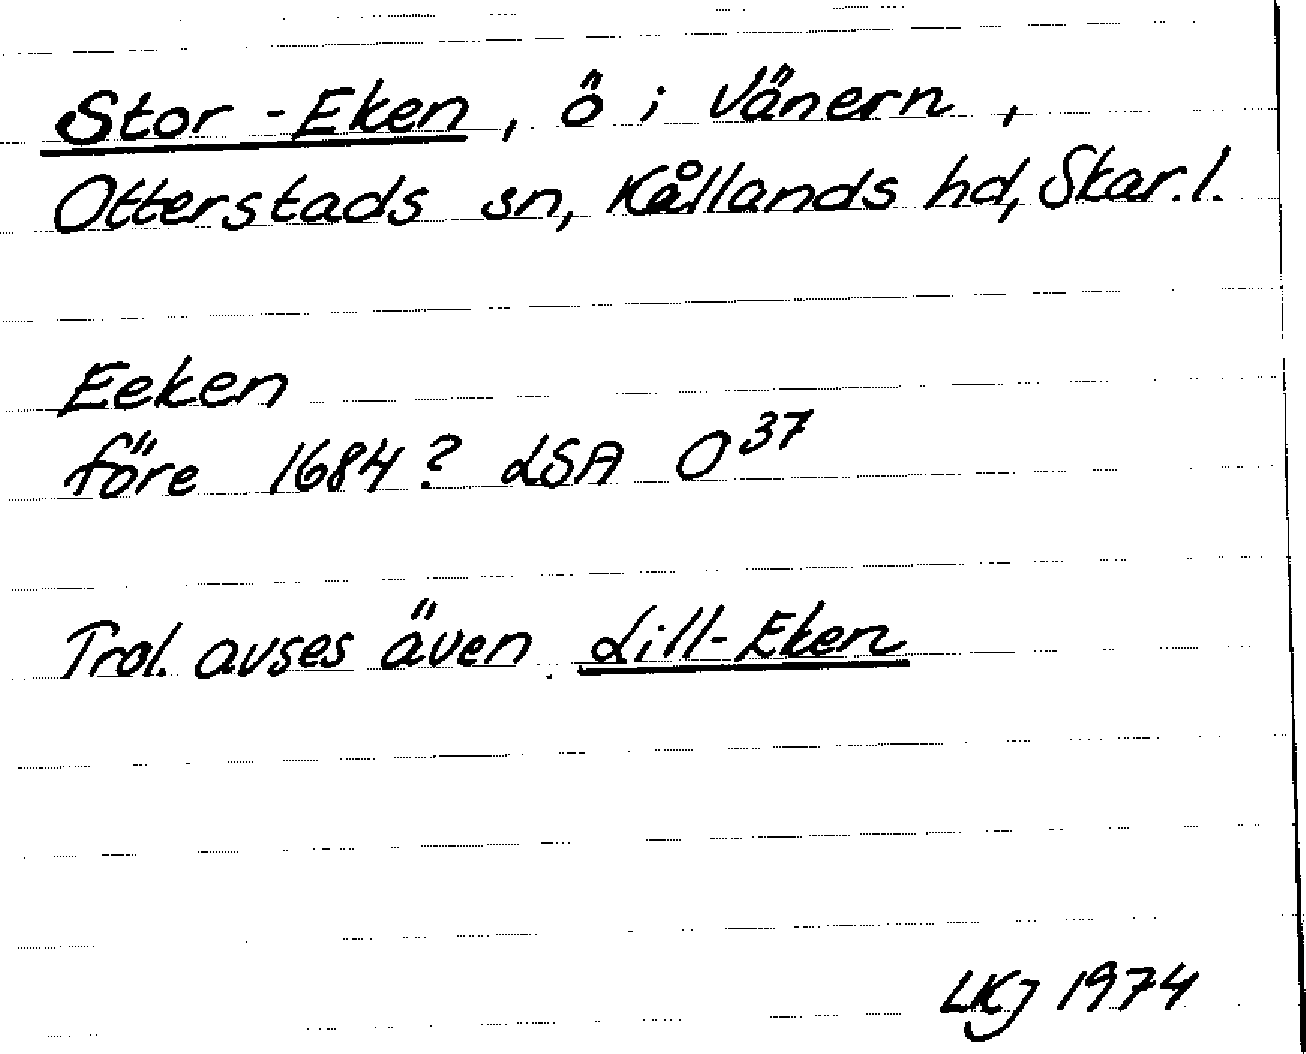 Stor-Eken, ö i Vänern,
Otterstads sn, Kållands hd, Skar. l.
Eeken
före 1684? LSA O 37
Trol. avses även Lill-Eken
LKJ 1974